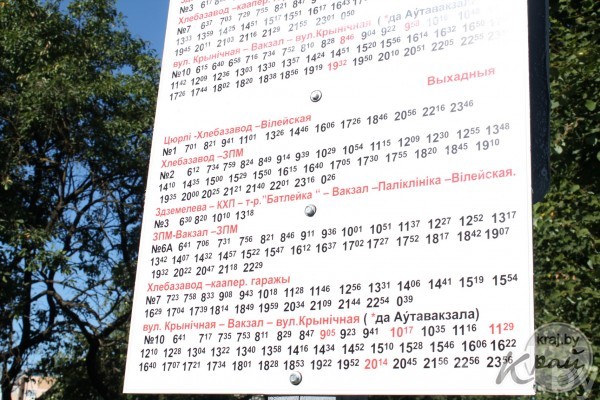 Хлебазавод –каапер.
№7 6³⁷ 7⁰³ 7²⁹
вул. Крынічная – Вакзал – вул.Крынічная ( *да Аўтавакзала
№10 6¹⁵ 6⁴⁰ 6⁵⁸ 7¹⁶ 7³⁴ 7⁵² 8¹⁰ 8²⁸ 8⁴⁶ 9⁰⁴ 9²²
11⁴² 12⁰⁹ 12³⁶ 13⁰³ 13³⁰ 13⁵⁷ 14²⁴ 14⁵¹ 15²⁰
17²⁶ 17⁴⁴ 18⁰² 18²⁰ 18³⁸ 18⁵⁶ 19¹⁹ 19³² 19⁵⁰ 20¹⁰ 20⁵¹ 22⁰⁵ 22⁵⁵
Выхадныя
Цюрлі -Хлебазавод –Вілейская
№1 7⁰¹ 8²¹ 9⁴¹ 11⁰¹ 13²⁶ 14⁴⁶ 16⁰⁶ 17²⁶ 18⁴⁶ 20⁵⁶ 22¹⁶ 23⁴⁶
Хлебазавод –ЗПМ
№2 6¹² 7³⁴ 7⁵⁹ 8²⁴ 8⁴⁹ 9¹⁴ 9³⁹ 10²⁹ 10⁵⁴ 11¹⁵ 12⁰⁹ 12³⁰ 12⁵⁵ 13⁴⁸
14¹⁰ 14³⁵ 15⁰⁰ 15²⁹ 15⁵⁰ 16¹⁵ 16⁴⁰ 17⁰⁵ 17³⁰ 17⁵⁵ 18²⁰ 18⁴⁵ 19¹⁰
19³⁵ 20⁰⁰ 20²⁵ 21²¹ 21⁴⁰ 22²¹ 23¹⁶ 0²⁶
Здземелева – КХП – т-р."Батлейка " – Вакзал –Паліклініка –Вілейская.
№3 6³⁰ 8²⁰ 10¹⁰ 13¹⁸
ЗПМ-Вакзал –ЗПМ
№6А 6⁴¹ 7⁰⁶ 7³¹ 7⁵⁶ 8²¹ 8⁴⁶ 9¹¹ 9³⁶ 10⁰¹ 10⁵¹ 11³⁷ 12²⁷ 12⁵² 13¹⁷
13⁴² 14⁰⁷ 14³² 14⁵⁷ 15²² 15⁴⁷ 16¹² 16³⁷ 17⁰² 17²⁷ 17⁵² 18¹⁷ 18⁴² 19⁰⁷
19³² 20²² 20⁴⁷ 21¹⁸ 22²⁹
Хлебазавод –каапер. гаражы
№7 7²³ 7⁵⁸ 8³³ 9⁰⁸ 9⁴³ 10¹⁸ 11²⁸ 11⁴⁶ 12⁵⁶ 13³¹ 14⁰⁶ 14⁴¹ 15¹⁹ 15⁵⁴
16²⁹ 17⁰⁴ 17³⁹ 18¹⁴ 18⁴⁹ 19⁵⁹ 20³⁴ 21⁰⁹ 21⁴⁴ 22⁵⁴ 0³⁹
вул. Крынічная – Вакзал – вул.Крынічная ( *да Аўтавакзала)
№10 6⁴¹ 7¹⁷ 7³⁵ 7⁵³ 8¹¹ 8²⁹ 9⁰⁵ 9²³ 9⁴¹ 10¹⁷ 10³⁵ 11¹⁶ 11²⁹
12¹⁰ 12²⁸ 13⁰⁴ 13²² 13⁴⁰ 13⁵⁸ 14¹⁶ 14³⁴ 14⁵² 15¹⁰ 15²⁸ 15⁴⁶ 16⁰⁴ 16²²
16⁴⁰ 17⁰⁷ 17²¹ 17³⁴ 18⁰¹ 18¹⁰ 18³⁵ 18⁵³ 19²² 19⁵² 20¹⁴ 20⁴⁵ 21⁵⁶ 22⁵⁶ 23⁵⁶
kraj.by
Край